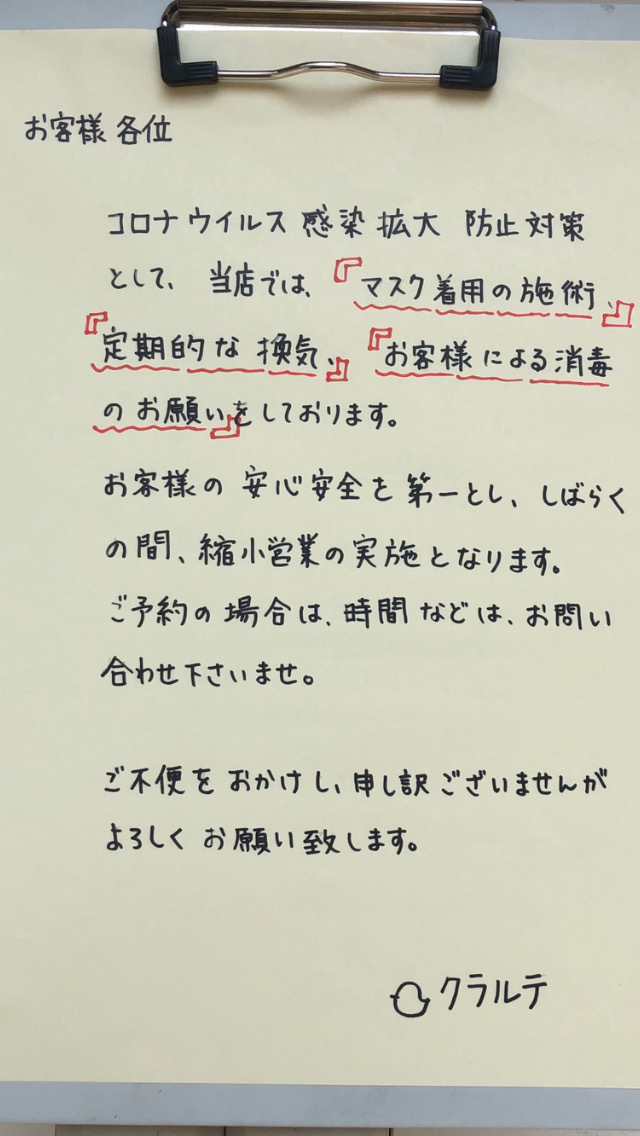 お客様各位
コロナウイルス感染拡大 防止対策
として、当店では、『マスク着用の施術、』
『定期的な換気、』『お客様による消毒
のお願い』をしております。
お客様の安心安全を第一とし、しばらく
の間、縮小営業の実施となります。
ご予約の場合は、時間などは、お問い
合わせ下さいませ。
ご不便をおかけし、申し訳ございませんが
よろしくお願い致します。
クラルテ